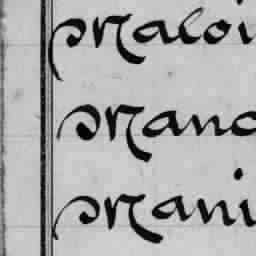 Maloi
Manc
Mani